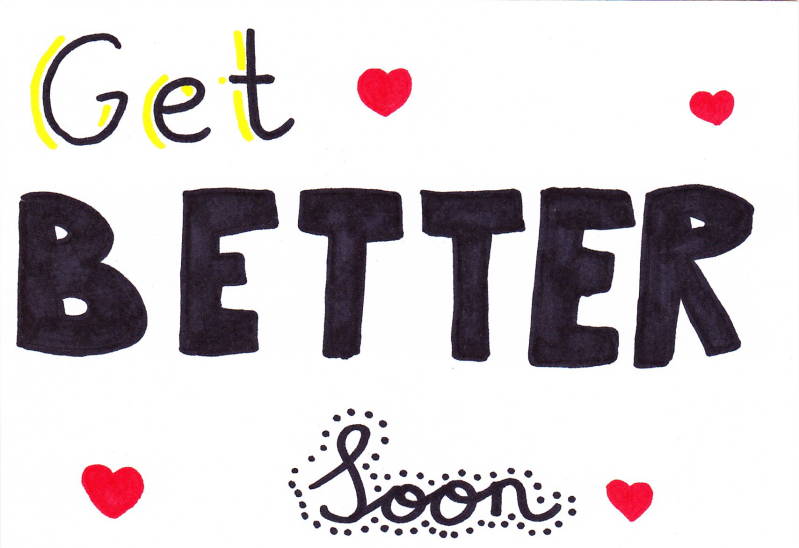 Get
BETTER
Soon